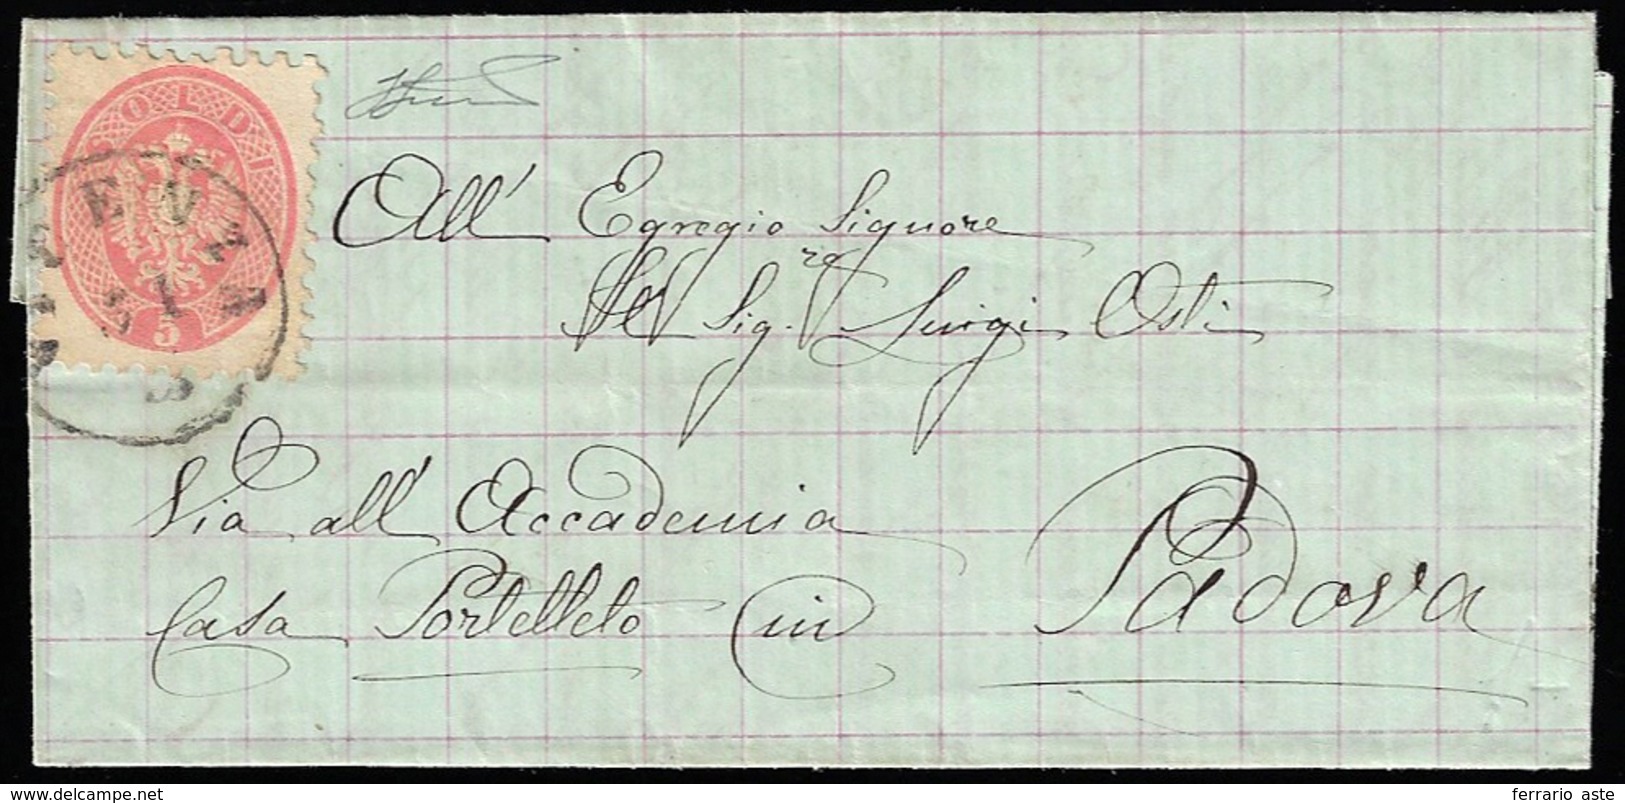 SOLDI
5
VICENZA
31
All' Egregio Signore
Il Sig.re Luigi Osti
Via all' Accademia
Casa Portelleto in Padova
www.delcampe.net
ferrario aste